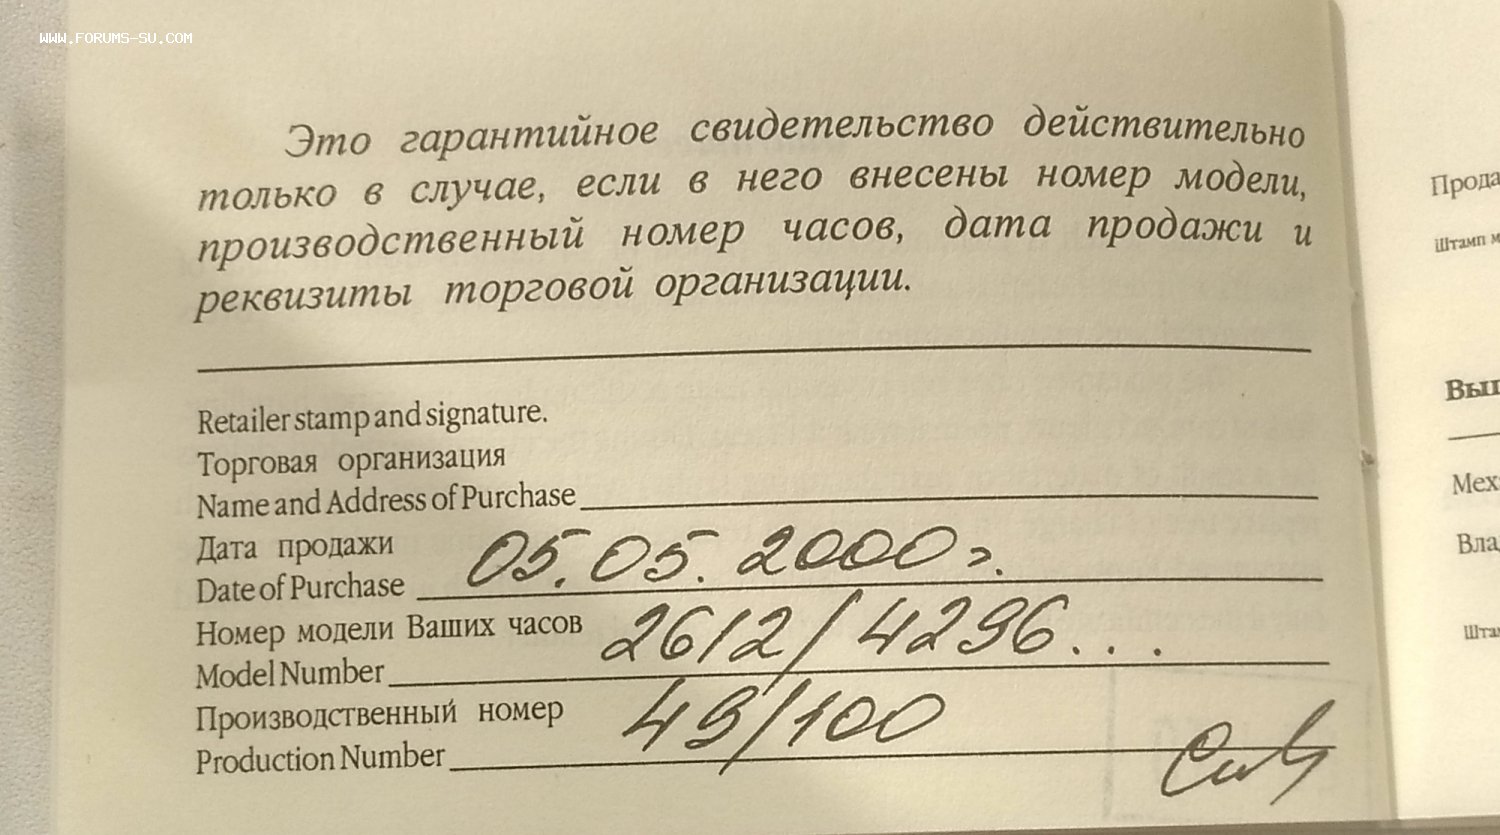 WWW.FORUMS-SU.COM
Это гарантийное свидетельство действительно
только в случае, если в него внесены номер модели,
производственный номер часов, дата продажи и
реквизиты торговой организации.
Retailer stamp and signature.
Торговая организация
Name and Address of Purchase
Дата продажи
Date of Purchase 05.05.2000г.
Номер модели Ваших часов
Model Number 2612/4296...
Производственный номер
Production Number 49/100
Штамп